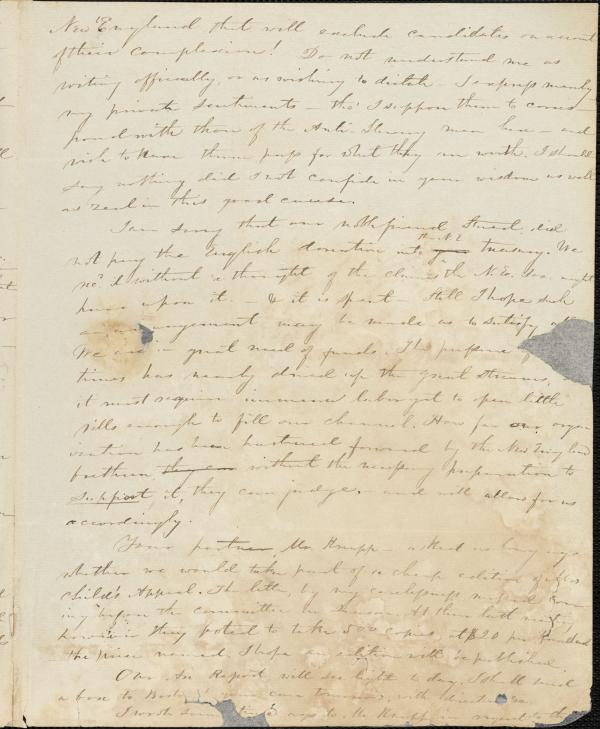 New England that will exclude candidates on account
of their complexion! Do not understand me as
writing officially, or as wishing to dictate. I express merely
my private sentiments – tho' I suppose them to corres-
pond with those of the Anti-Slavery men here – and
wish to have them pass for what they are worth. I should
say nothing did I not confide in your wisdom as well
as zeal in this good cause.
I am sorry that our noble friend, Stuart, did
not pay the English donation into the N.E. treasury. We
rec'd it without a thought of the claims the N.E. Soc. might
have upon it. – & it is spent – Still I hope such
an arrangement may be made as to satisfy all
We are in great need of funds. The pressure of
times has nearly dried up the great streams,
it must require immense labor yet to open little
rills enough to fill our channel. How far our organ-
ization has been hastened forward by the New England
brethren they can without the necessary preparation to
support it, they can judge, – and will allow for us
accordingly.
Your partner, Mr. Knapp – asked us long ago
whether we would take part of a cheap edition of Mrs
Child's Appeal. The letter, by my carelessness missed com-
ing before the committee in season. At their last meeting
however they voted to take 500 copies, at $20 per hundred
the price named. I hope an edition will be published.
Our An. Report will see light to day, I shall send
a box to Boston
I wrote some days ago to Mr. Knapp in regard to the